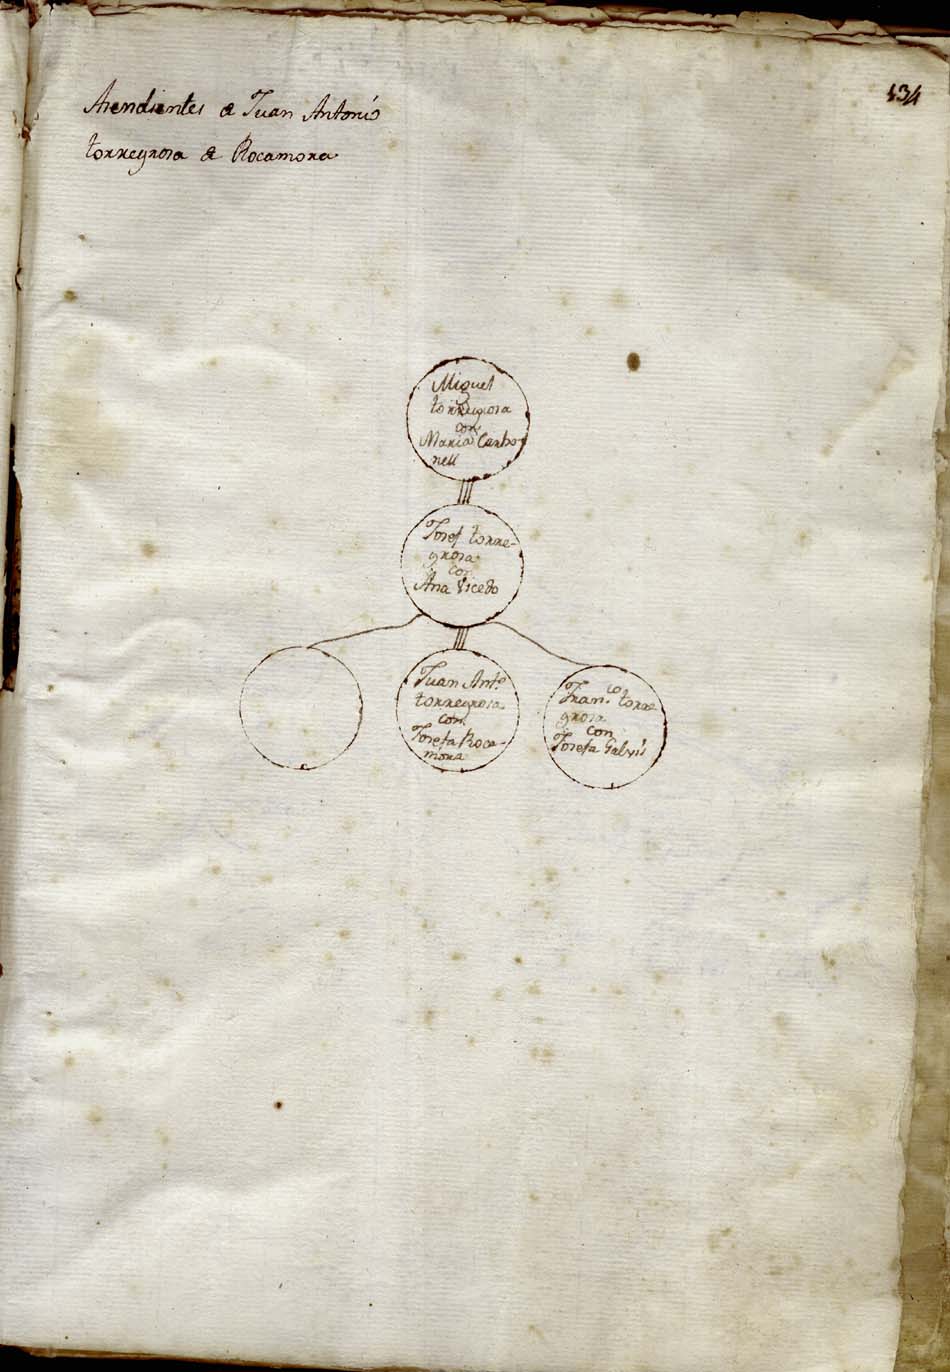 Asendientes de Juan Antonio
torregrosa de Rocamora
134
Miguel
torregrosa
con
Maria Carbo
nell
Josef torre-
grosa
con
Ana Vicedo
Juan Ant.o
torregrosa
con
Josefa Roca-
mora
Fran.co torre
grosa
con
Josefa Galvis